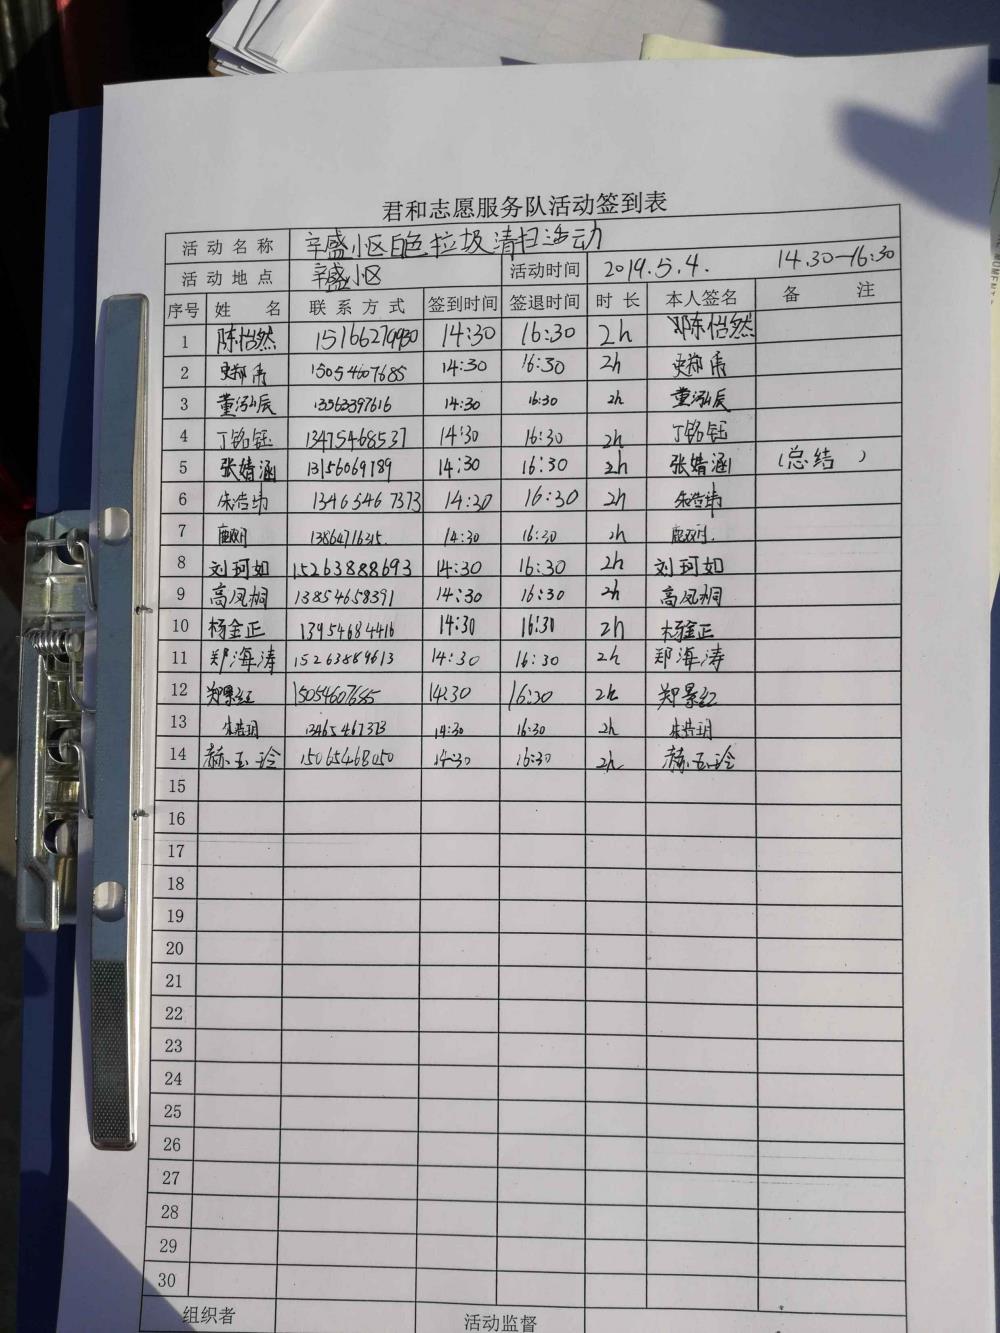 君和志愿服务队活动签到表
活动名称 辛盛小区白色垃圾清扫活动
活动地点 辛盛小区 活动时间 2019.5.4. 14.30—16:30
序号 姓名 联系方式 签到时间 签退时间 时长 本人签名 备注
1 陈怡然 14:30 16:30 2h 陈怡然
2 史郑禹 15054607685 14:30 16:30 2h 史郑禹
3 董泓辰 13563397616 14:30 16:30 2h 董泓辰
4 丁铭钰 13475468537 14:30 16:30 2h 丁铭钰
5 张婧涵 13156069189 14:30 16:30 2h 张婧涵 (总结)
6 朱浩纬 13465467373 14:30 16:30 2h 朱浩纬
7 13864716315. 14:30 16:30 2h
8 刘珂如 15263888693 14:30 16:30 2h 刘珂如
9 高凤桐 13854658391 14:30 16:30 2h 高凤桐
10 杨金正 13954684416 14:30 16:30 2h 杨金正
11 郑海涛 15263889613 14:30 16:30 2h 郑海涛
12 郑景红 15054607685 14:30 16:30 2h 郑景红
13 朱浩玥 13465467373 14:30 16:30 2h 朱浩玥
14 赫玉玲 15065468050 14:30 16:30 2h 赫玉玲
15
16
17
18
19
20
21
22
23
24
25
26
27
28
29
30
组织者 活动监督